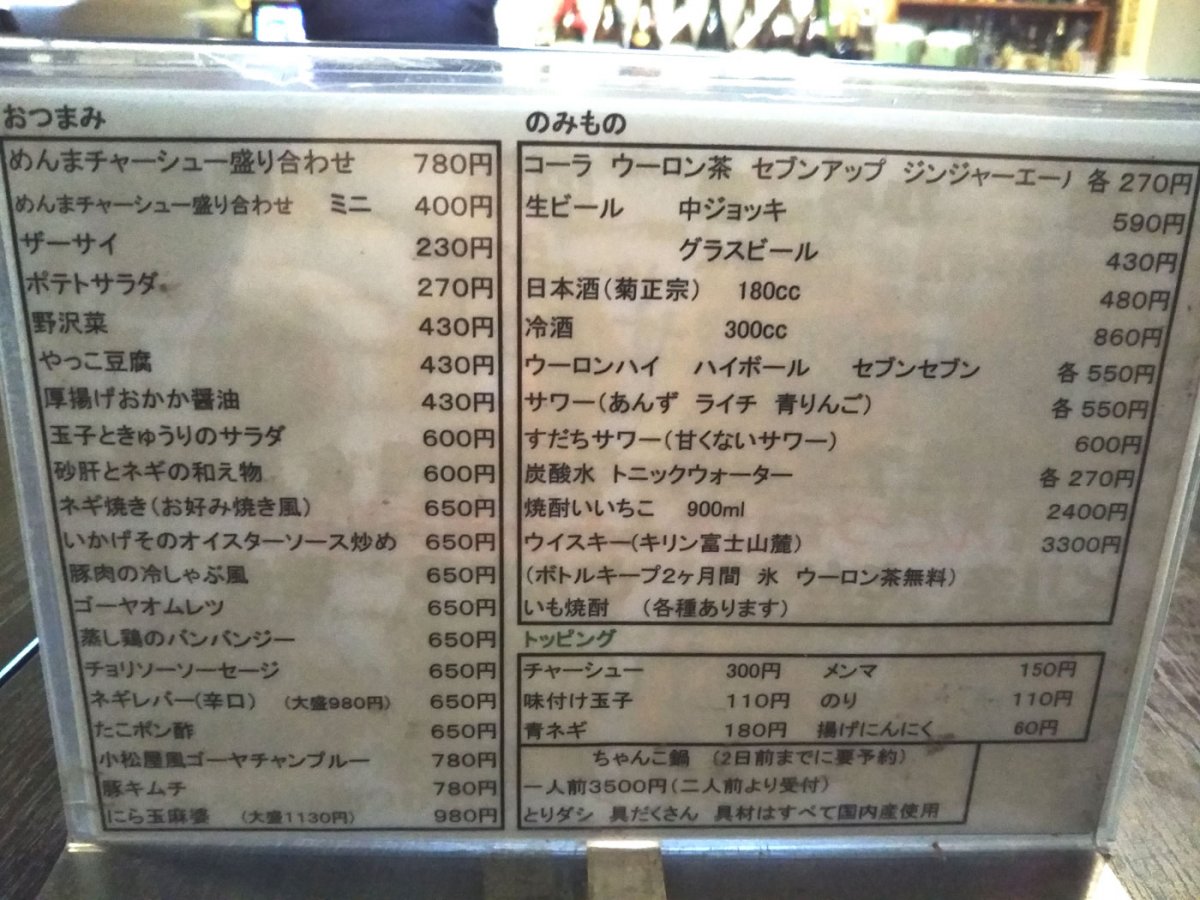 おつまみ
めんまチャーシュー盛り合わせ 780円
めんまチャーシュー盛り合わせ ミニ 400円
ザーサイ 230円
ポテトサラダ 270円
野沢菜 430円
やっこ豆腐 430円
厚揚げおかか醤油 430円
玉子ときゅうりのサラダ 600円
砂肝とネギの和え物 600円
ネギ焼き(お好み焼き風) 650円
いかげそのオイスターソース炒め 650円
豚肉の冷しゃぶ風 650円
ゴーヤオムレツ 650円
蒸し鶏のバンバンジー 650円
チョリソーソーセージ 650円
ネギレバー(辛口) (大盛980円) 650円
たこポン酢 650円
小松屋風ゴーヤチャンプルー 780円
豚キムチ 780円
にら玉麻婆 (大盛1130円) 980円
のみもの
コーラ ウーロン茶 セブンアップ ジンジャーエール 各270円
生ビール 中ジョッキ 590円
グラスビール 430円
日本酒(菊正宗) 180cc 480円
冷酒 300cc 860円
ウーロンハイ ハイボール セブンセブン 各550円
サワー(あんず ライチ 青りんご) 各550円
すだちサワー(甘くないサワー) 600円
炭酸水 トニックウォーター 各270円
焼酎いいちこ 900ml 2400円
ウイスキー(キリン富士山麓) 3300円
(ボトルキープ2ヶ月間 氷 ウーロン茶無料)
いも焼酎 (各種あります)
トッピング
チャーシュー 300円 メンマ 150円
味付け玉子 110円 のり 110円
青ネギ 180円 揚げにんにく 60円
ちゃんこ鍋 (2日前までに要予約)
一人前3500円(二人前より受付)
とりダシ 具だくさん 具材はすべて国内産使用